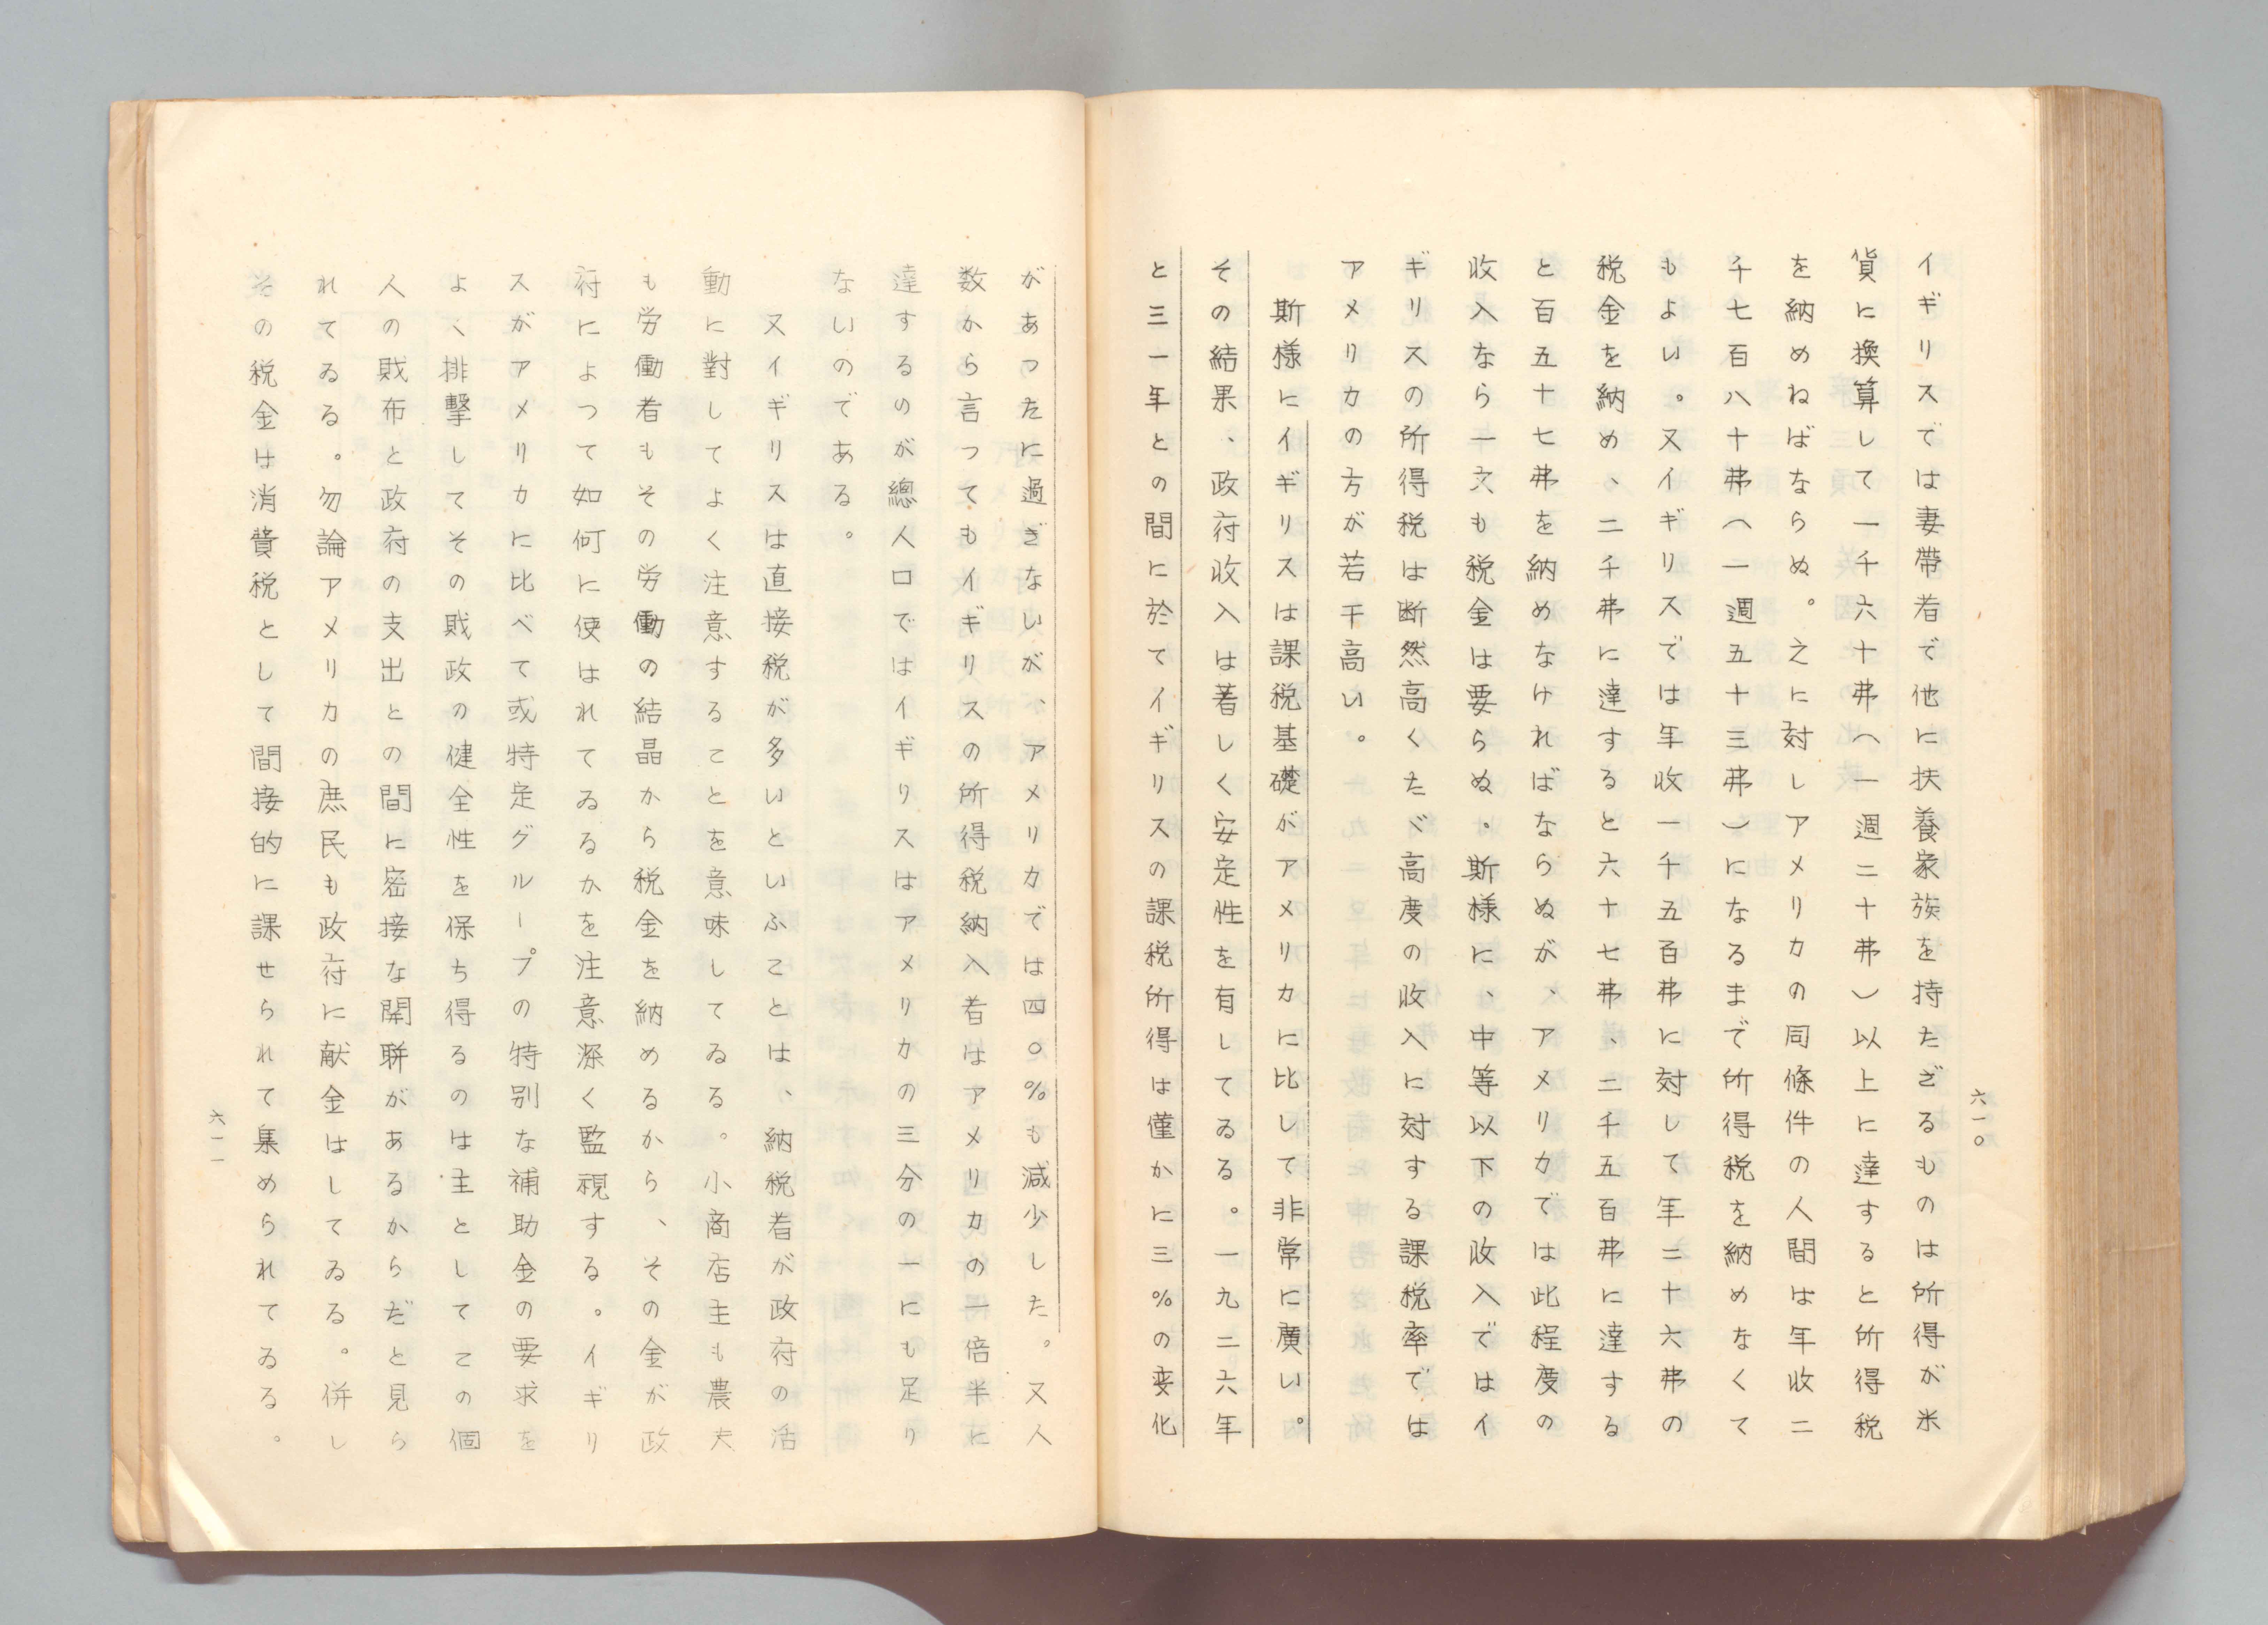 六一〇
イギリスでは妻帶者で他に扶養家族を持たざるものは所得が米
貨に換算して一千六十弗(一週二十弗)以上に達すると所得税
を納めねばならぬ。之に対しアメリカの同條件の人間は年收二
千七百八十弗(一週五十三弗)になるまで所得税を納めなくて
もよい。又イギリスでは年收一千五百弗に対して年二十六弗の
税金を納め、二千弗に達すると六十七弗、二千五百弗に達する
と百五十七弗を納めなければならぬが、アメリカでは此程度の
收入なら一文も税金は要らぬ。斯様に、中等以下の收入ではイ
ギリスの所得税は断然高くたゞ高度の收入に対する課税率では
アメリカの方が若干高い。
斯様にイギリスは課税基礎がアメリカに比して非常に廣い。
その結果、政府收入は著しく安定性を有してゐる。一九二六年
と三一年との間に於てイギリスの課税所得は僅かに三%の変化
があつたに過ぎないが、アメリカでは四〇%も減少した。又人
数から言つてもイギリスの所得税納入者はアメリカの一倍半に
達するのが總人口ではイギリスはアメリカの三分の一にも足り
ないのである。
又イギリスは直接税が多いといふことは、納税者が政府の活
動に對してよく注意することを意味してゐる。小商店主も農夫
も労働者もその労働の結晶から税金を納めるから、その金が政
府によつて如何に使はれてゐるかを注意深く監視する。イギリ
スがアメリカに比べて或特定グループの特別な補助金の要求を
よく排撃してその戝政の健全性を保ち得るのは主としてこの個
人の戝布と政府の支出との間に密接な関聯があるからだと見ら
れてゐる。勿論アメリカの庶民も政府に献金はしてゐる。併し
その税金は消費税として間接的に課せられて集められてゐる。
六一一